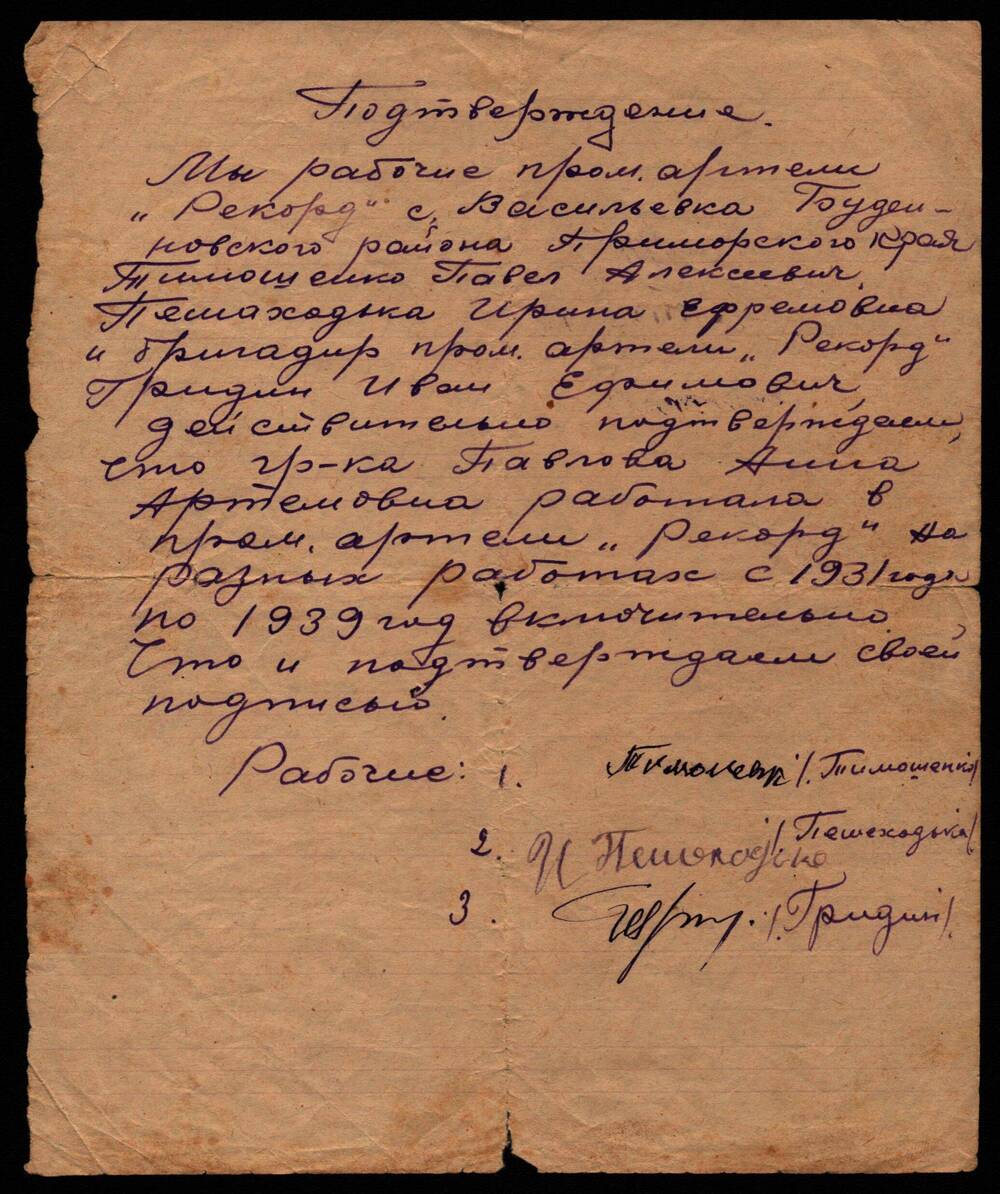 Подтверждение.
Мы рабочие пром. артели
„Рекорд" с. Васильевка Буден-
новского района Приморского края
Тимошенко Павел Алексеевич,
Пешаходька Ирина Ефремовна
и бригадир пром. артели „Рекорд"
Гридин Иван Ефимович,
действительно подтверждаем,
что гр-ка Павлова Анна
Артемовна работала в
пром. артели „Рекорд" на
разных работах с 1931 года
по 1939 год включительно,
Что и подтверждаем своей
подписью.
Рабочие: 1. /Тимошенко/
2. И Пешаходько /Пешеходька/
3. /Гридин/.